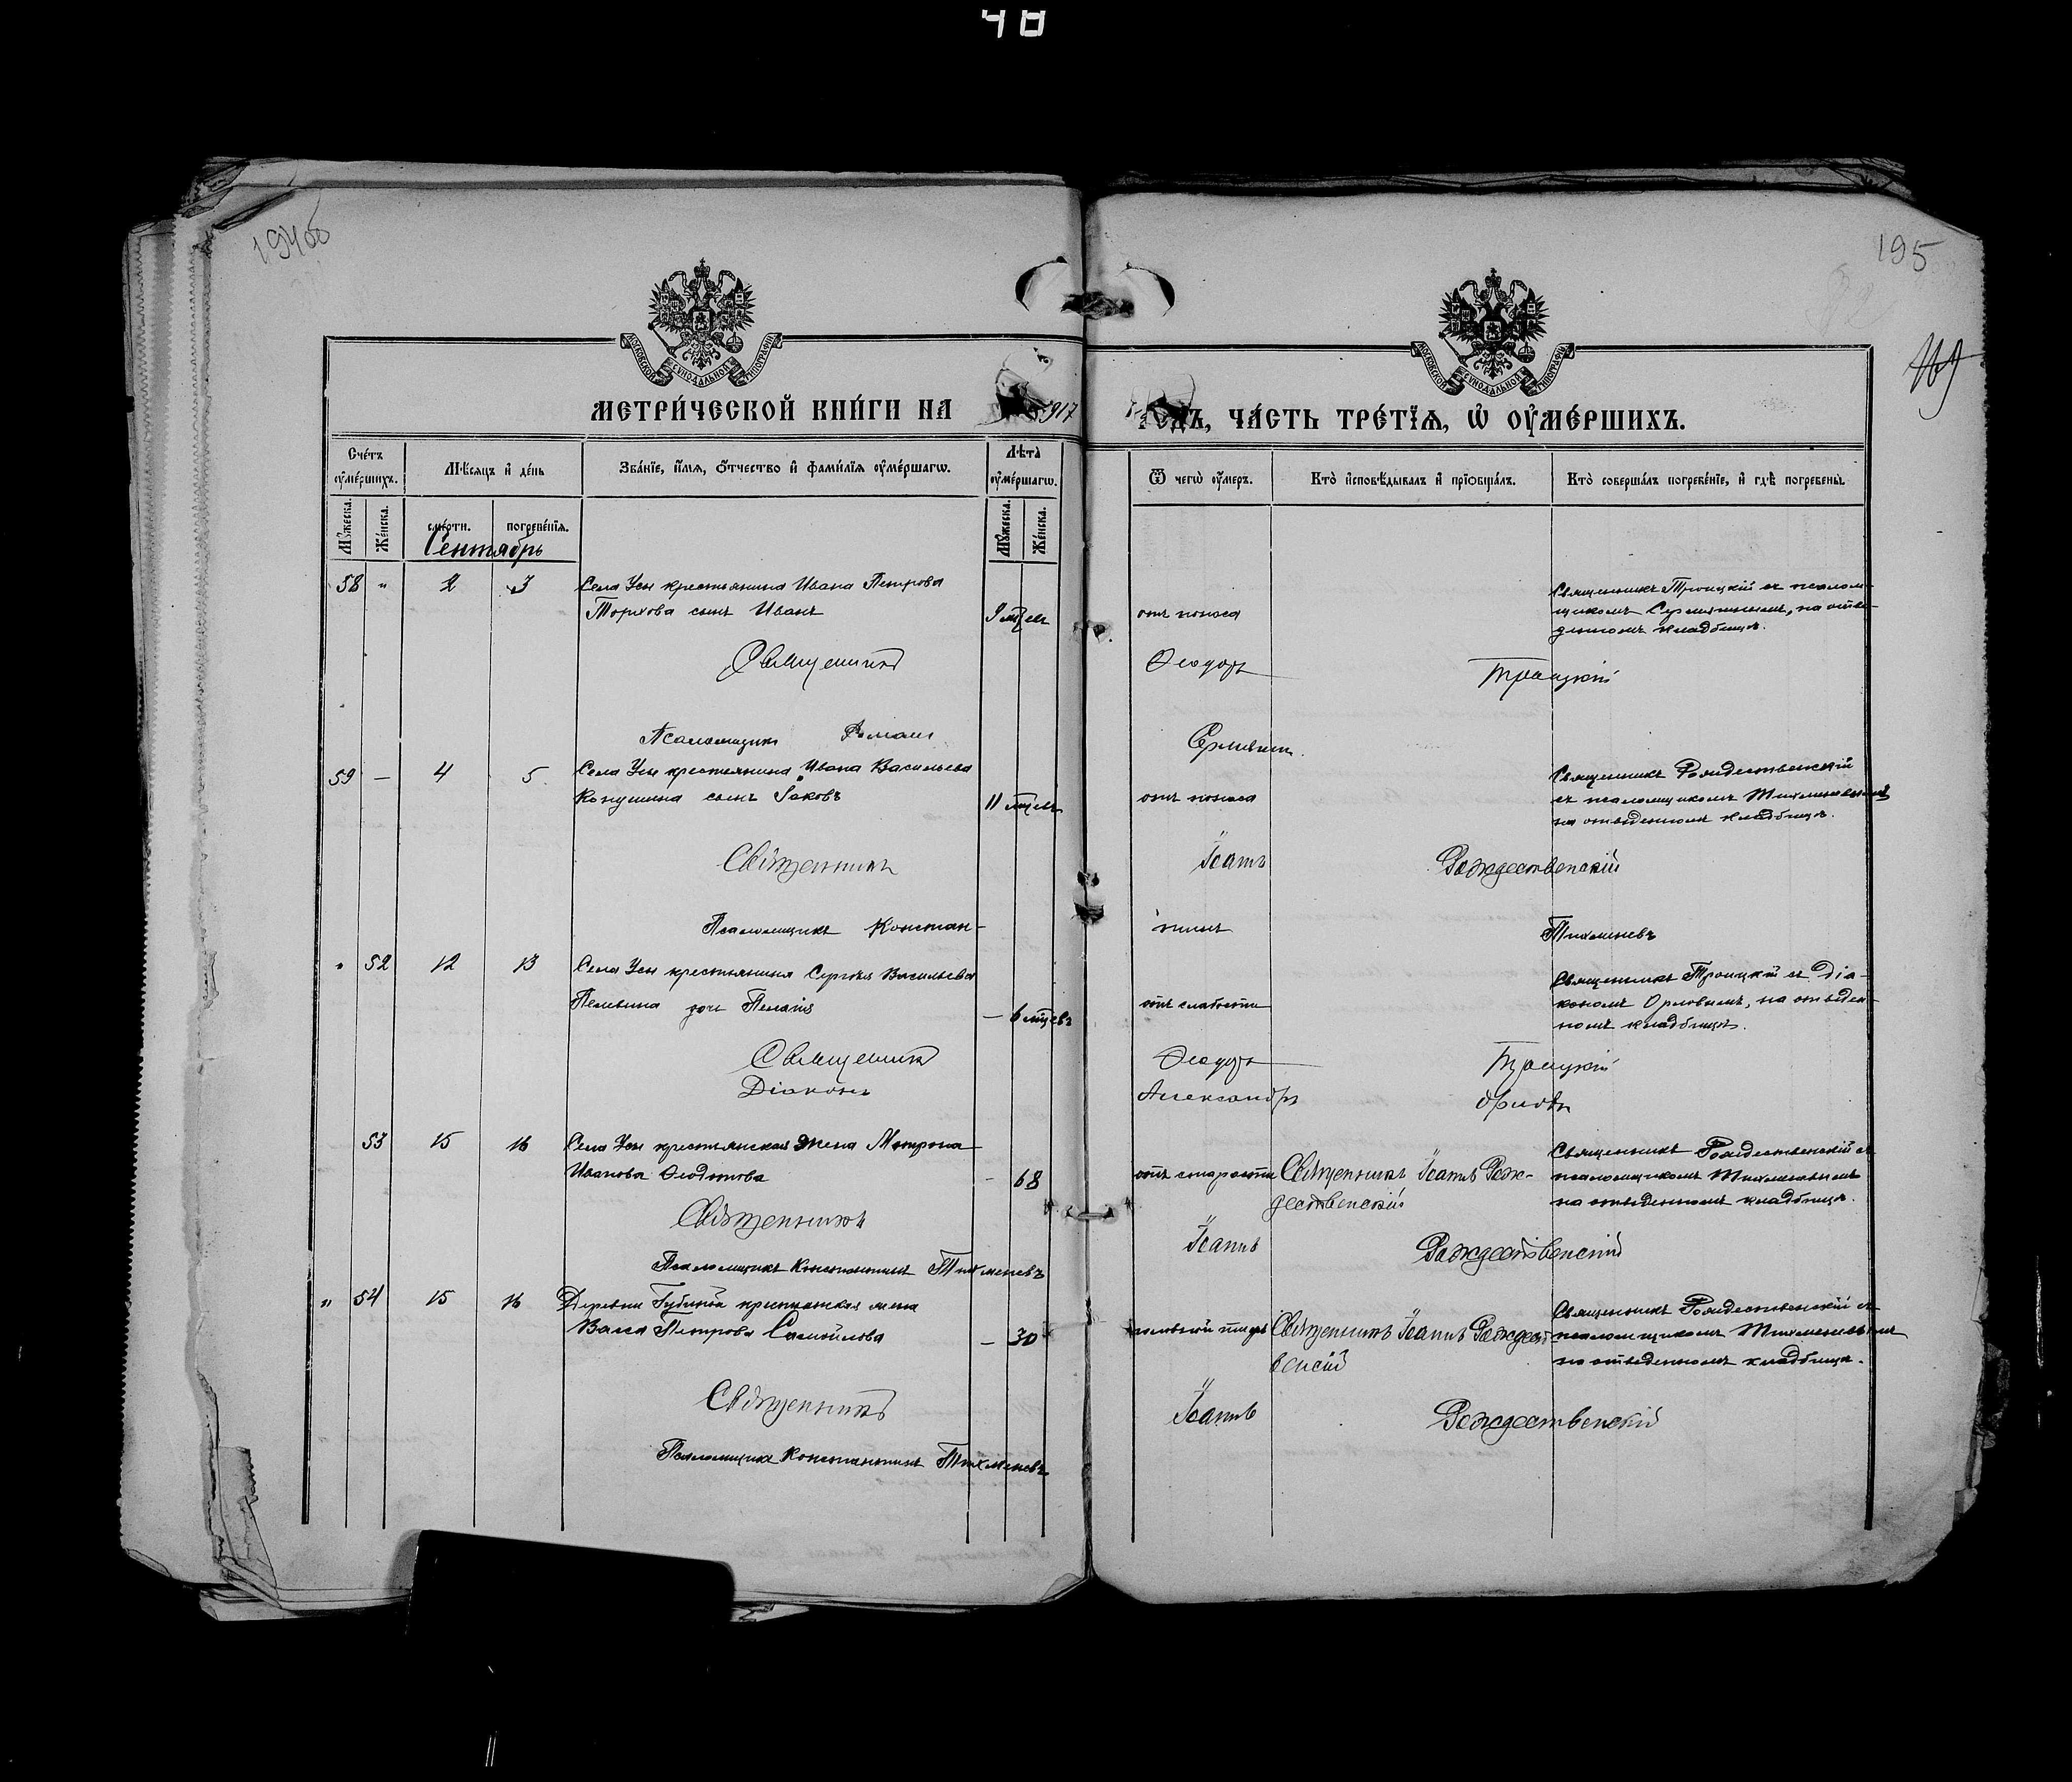 48
194об
195
169
МОСКОВСКОЙ СѴНОДАЛЬНОЙ ТИПОГРАФІИ
МОСКОВСКОЙ СѴНОДАЛЬНОЙ ТИПОГРАФІИ
МЕТРИ́ЧЕСКОЙ КНИ́ГИ НА 1917
ГОДЪ, ЧА́СТЬ ТРЕ́ТЇѦ, Ѡ҆ ОУ҆МЕ́РШИХЪ.
Сче́тъ оу҆ме́ршихъ.
Мѣ́сяцъ и҆ де́нь
Зва́нїе, и҆́мѧ, ѻ҆́тчество и҆ фами́лїѧ оу҆ме́ршагѡ.
Лѣ́та оу҆ме́ршагѡ.
Ѿ чегѡ̀ оу҆́меръ.
Кто̀ и҆сповѣ́дывалъ и҆ прїѡбща́лъ.
Кто̀ соверша́лъ погребе́нїе, и҆ гдѣ̀ погребены̀.
Мꙋ́жеска. Же́нска. сме́рти. погребе́нїѧ. Мꙋ́жеска. Же́нска.
Сентябрь
58 " 2 3 Села Усы крестьянина Ивана Петрова
Торхова сынъ Иванъ 9 мцевъ
отъ поноса
Священникъ Троицкій съ псалом-
щикомъ Сермягинымъ, на отве-
денномъ кладбищѣ.
Священникъ Ѳеодоръ Троицкій
Псаломщикъ Романъ
59 — 4 5 Села Усы крестьянина Ивана Васильева
Кокушкина сынъ Іаковъ 11 мцевъ
отъ поноса
Священникъ Рождественскій
съ псаломщикомъ Тихменевымъ
на отведенномъ кладбищѣ.
Священникъ Іоаннъ Рождественскій
Псаломщикъ Констан- тинъ Тихменевъ
" 52 12 13 Села Усы крестьянина Сергѣя Васильева
дочь Пелагія — 6 мцевъ
отъ слабости
Священникъ Троицкій съ діа-
кономъ Орловымъ, на отведен-
номъ кладбищѣ.
Священникъ Ѳеодоръ Троицкій
Діаконъ Александръ Орловъ
53 15 16 Села Усы крестьянская жена Матрона
Иванова Ѳедотова — 68
отъ старости Священникъ Іоаннъ Рож-
дественскій
Священникъ Рождественскій съ
псаломщикомъ Тихменевымъ
на отведенномъ кладбищѣ.
Священникъ Іоаннъ Рождественскій
Псаломщикъ Константинъ Тихменевъ
" 54 15 16 Деревни крестьянская жена
Васса Петрова Самойлова — 30
Священникъ Іоаннъ Рождест-
венскій
Священникъ Рождественскій съ
псаломщикомъ Тихменевымъ
на отведенномъ кладбищѣ.
Священникъ Іоаннъ Рождественскій
Псаломщикъ Константинъ Тихменевъ